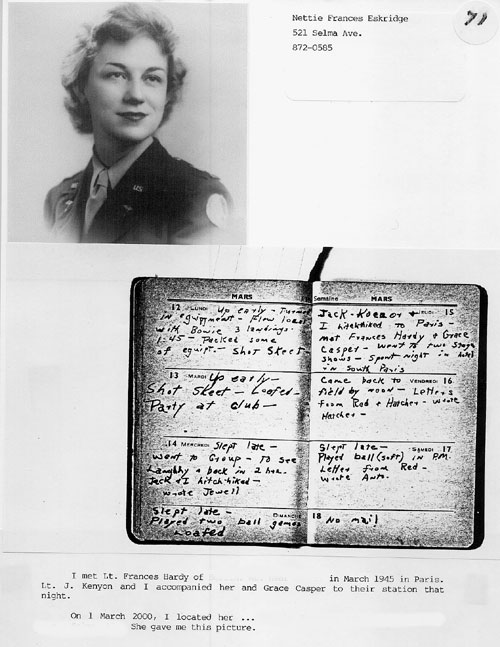 Nettie Frances Eskridge
521 Selma Ave.
872-0585
71
MARS
12 LUNDI Up early - Turned
in equipment - Flew local
with Bowie 3 landings.
1:45 - Packed some
of equip. - Shot Skeet -
13 MARDI Up early -
Shot Skeet - Loafed -
Party at club -
14 MERCREDI Slept late -
went to Group - To see
& back in 2 hrs.
Jack & I hitch-hiked -
wrote Jewell
Slept late - DIMANCHE
Played two ball games
Loafed
Semaine MARS
Jack - JEUDI 15
I hitchhiked to Paris -
met Frances Hardy & Grace
Casper - went to two stage
shows - Spent night in hotel
in South Paris
Came back to VENDREDI 16
field by noon - Letters
from Red & Hatcher - wrote
Hatcher -
Slept late - SAMEDI 17
Played ball (soft) in P.M.
Letter from Red -
wrote
18 No mail
I met Lt. Frances Hardy of in March 1945 in Paris.
Lt. J. Kenyon and I accompanied her and Grace Casper to their station that
night.
On 1 March 2000, I located her ...
She gave me this picture.